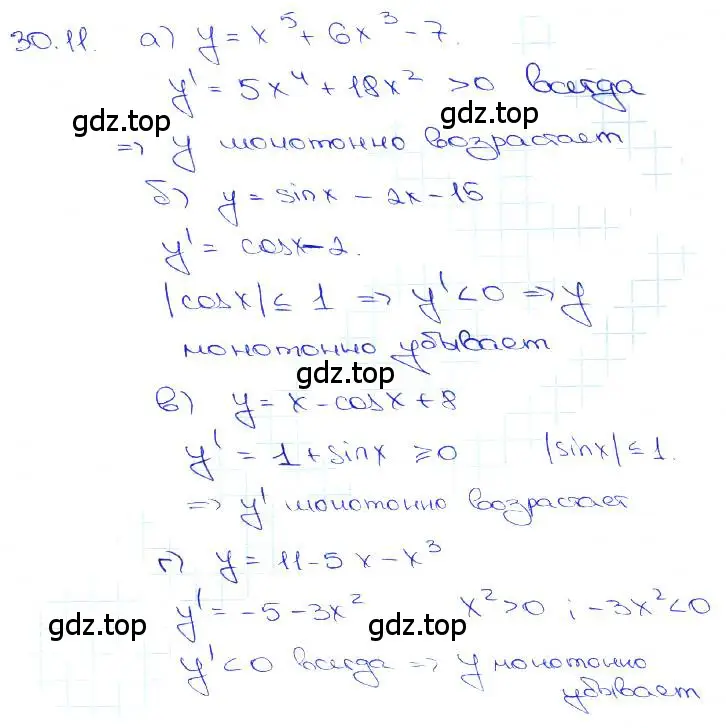 30.11. а) y = x⁵ + 6x³ - 7.
y' = 5x⁴ + 18x² >0 всегда
gdz.top gdz.top
=> y монотонно возрастает
б) y = sinx - 2x - 15
y' = cosx - 2.
|cosx| ≤ 1 => y' < 0 => y
монотонно убывает
gdz.top
в) y = x - cosx + 8
y' = 1 + sinx ≥ 0 |sinx| ≤ 1.
=> y' монотонно возрастает
г) y = 11 - 5x - x³
y' = -5 - 3x² x² > 0 ; -3x² < 0
gdz.top gdz.top
y' < 0 всегда => y монотонно
убывает